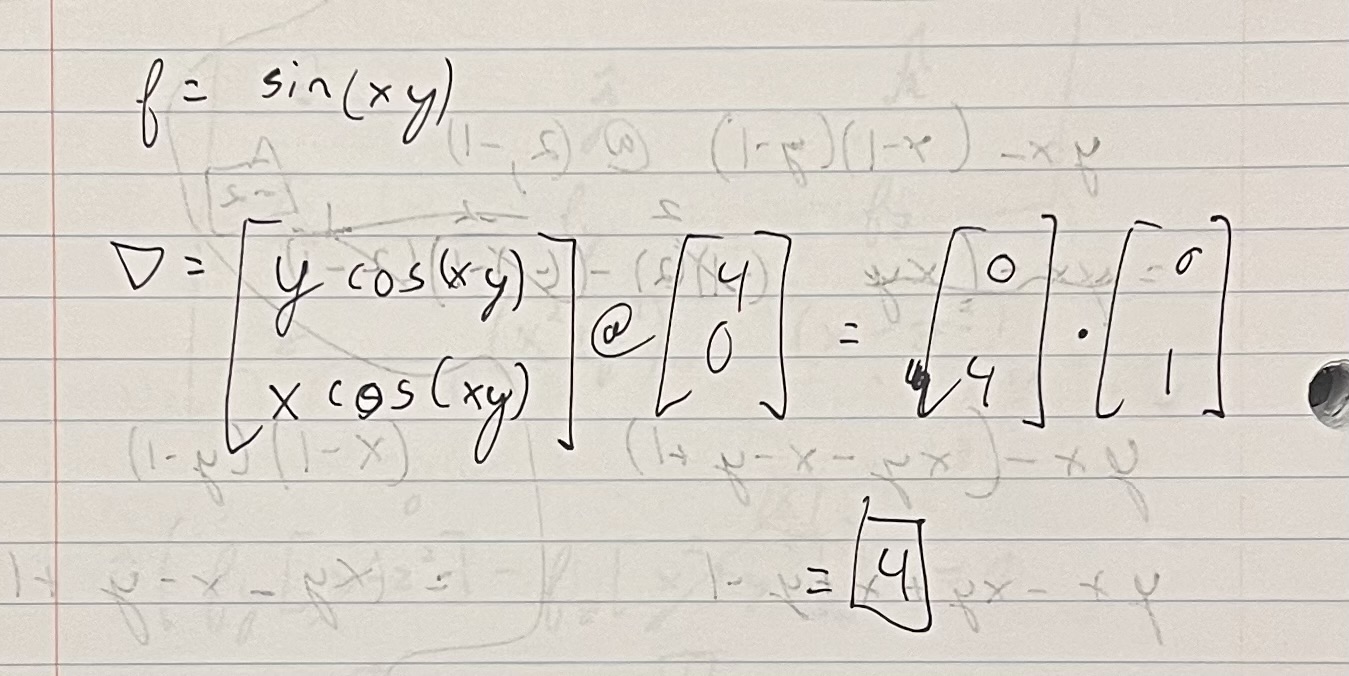 f = sin(xy)
∇ = [y cos(xy) x cos(xy)] @ [4 0] = [0 4] · [0 1]
= 4